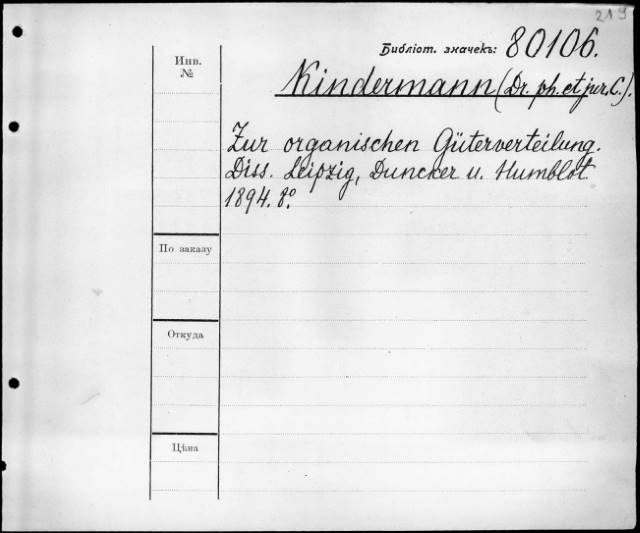 219
Библіот. значекъ: 80106.
Инв.
№
Kindermann (Dr. ph. et jur. C.).
Zur organischen Güterverteilung.
Diss. Leipzig, Duncker u. Humblot
1894. 8°.
По заказу
Откуда
Цѣна